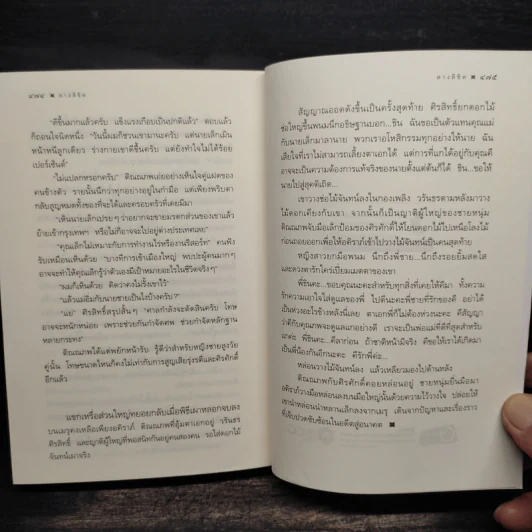 ๔๗๔ ■ ลางลิขิต
"ดีขึ้นมากแล้วครับ แข็งแรงเกือบเป็นปกติแล้ว" ตอบแล้ว
ก็ถอนใจนิดหนึ่ง "วันนี้ผมก็ชวนเขามานะครับ แต่นายเล็กเมิน
หน้าหนีลูกเดียว ร่างกายเขาดีขึ้นครับ แต่ยังทำใจไม่ได้ร้อย
เปอร์เซ็นต์"
"ไม่แปลกหรอกครับ" ติณณภพเอ่ยอย่างเห็นใจคู่แฝดของ
คนข้างตัว รายนั้นนึกว่าทุกอย่างอยู่ในกำมือ แต่เพียงพริบตา
กลับสูญหมดทั้งของที่จะได้และครอบครัวที่เคยมีมา
"เห็นนายเล็กเปรย ๆ ว่าอยากจะขายมรดกส่วนของเขาแล้ว
ย้ายเข้ากรุงเทพฯ หรือไม่ก็อาจจะไปอยู่ต่างประเทศเลย"
"คุณเล็กไม่เหมาะกับการทำงานไร่หรืองานรีสอร์ท" คนฟัง
รับเหมือนเห็นด้วย "บางทีการเข้าเมืองใหญ่ พบปะผู้คนมากๆ
อาจจะทำให้คุณเล็กรู้ว่าตัวเองมีเป้าหมายอะไรในชีวิตจริงๆ"
"ผมก็เห็นด้วย คิดว่าคงไม่รั้งเขาไว้"
"แล้วแม่เอื้อมกับนายชายเป็นไงบ้างครับ?"
"แย่" ศิรสิทธิ์สรุปสั้นๆ "ศาลกำลังจะตัดสินครับ โทษ
อาจจะหนักหน่อย เพราะช่วยกันกำจัดศพ ช่วยกำจัดหลักฐาน
หลายกระทง"
ติณณภพได้แต่พยักหน้ารับ รู้ดีว่าสำหรับหญิงชายสูงวัย
คู่นั้น โทษขนาดไหนก็คงไม่เท่ากับการสูญเสียรุ่งรตีและศิรศักดิ์
อีกแล้ว
แขกเหรื่อส่วนใหญ่ทยอยกลับเมื่อพิธีเผาหลอกจบลง
บนเมรุคงเหลือเพียงอคิราภ์ ติณณภพที่อุ้มตาเอกอยู่ วรินธร
ศิรสิทธิ์ และญาติผู้ใหญ่ที่พอสนิทกันอยู่คนสองคน รอใส่ดอกไม้
จันทน์เผาจริง
ลางลิขิต ■ ๔๗๕
สัญญาณออดดังขึ้นเป็นครั้งสุดท้าย ศิรสิทธิ์ยกดอกไม้
ช่อใหญ่ขึ้นพนมนึกอธิษฐานบอก...ชิน ฉันขอเป็นตัวแทนคุณแม่
กับนายเล็กมาลานาย พวกเราอโหสิกรรมทุกอย่างให้นาย ฉัน
เสียใจที่เราไม่สามารถเลี้ยงตาเอกได้ แต่การที่แกได้อยู่กับคุณดี
อาจจะเป็นความต้องการแท้จริงของนายตั้งแต่ต้นก็ได้ ชิน...ขอให้
นายไปสู่สุคติเถิด...
เขาวางช่อไม้จันทน์ลงในกองเพลิง วรินธรตามหลังมาวาง
ไม้ดอกเคียงกับเขา จากนั้นก็เป็นญาติผู้ใหญ่ของชายหนุ่ม
ติณณภพจับมือเล็กป้อมของศิรศักดิ์ให้โยนดอกไม้ไปเหนือโลงไม้
ก่อนถอยออกเพื่อให้อคิราภ์เข้าไปวางไม้จันทน์เป็นคนสุดท้าย
หญิงสาวยกมือพนม นึกถึงพี่ชาย...นึกถึงรอยยิ้มสดใส
และดวงตารักใคร่เปี่ยมเมตตาของเขา
พี่รินคะ...ขอบคุณนะคะสำหรับทุกสิ่งที่เคยให้ดีมา ทั้งความ
รักความเอาใจใส่ดูแลของพี่ ไปดีนะคะพี่ชายที่รักของดี อย่าได้
เป็นห่วงอะไรข้างหลังนี้เลย ตาเอกพี่ก็ไม่ต้องห่วงนะคะ ดีสัญญา
ว่าดีกับคุณภพจะดูแลแกอย่างดี เราจะเป็นพ่อแม่ที่ดีที่สุดสำหรับ
แกค่ะ พี่รินคะ...ดีลาก่อน ถ้าชาติหน้ามีจริง ดีขอให้เราได้เกิดมา
เป็นพี่น้องกันอีกนะคะ ดีรักพี่ค่ะ...
หล่อนวางไม้จันทน์ลง แล้วเหลียวมองไปด้านหลัง
ติณณภพกับศิรศักดิ์คอยหล่อนอยู่ ชายหนุ่มยื่นมือมา
อคิราภ์วางมือหล่อนลงบนมือใหญ่นั้นด้วยความไว้วางใจ ปล่อยให้
เขานำหล่อนนำหลานเล็กลงจากเมรุ เดินจากปัญหาและเรื่องราว
ที่เจ็บปวดซับซ้อนในอดีตสู่อนาคต ■